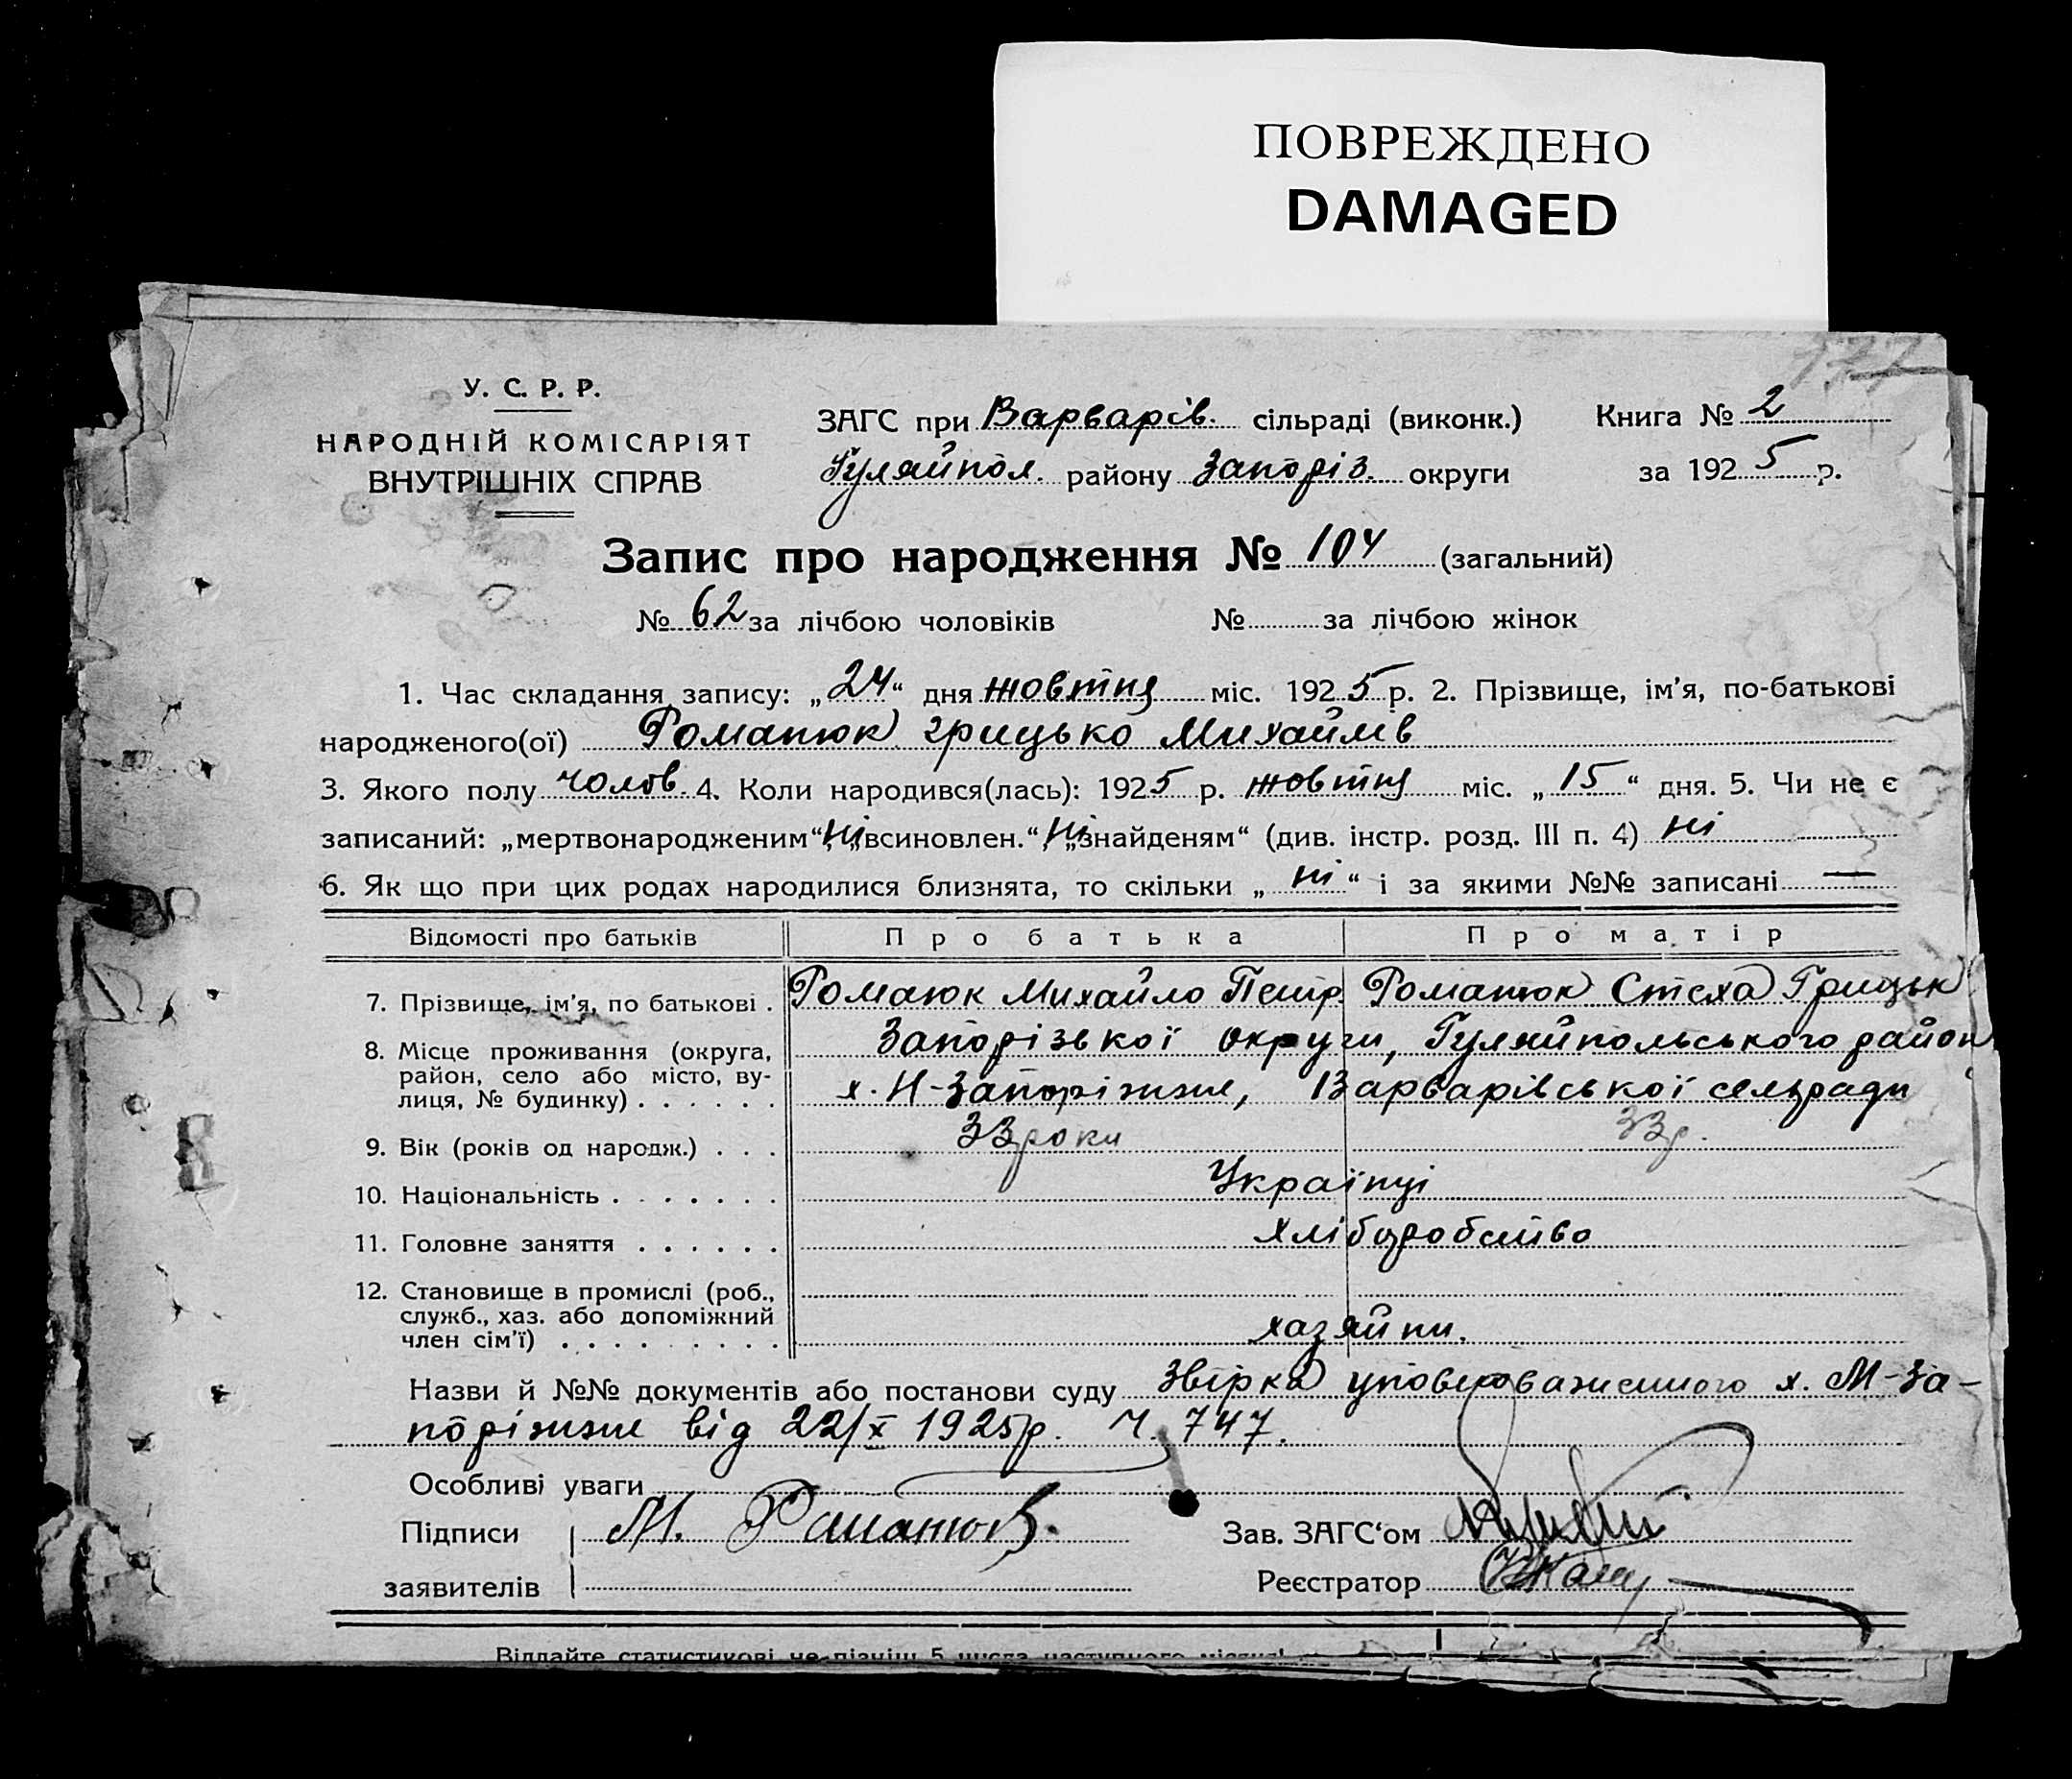 ПОВРЕЖДЕНО
DAMAGED
177
У. С. Р. Р.
НАРОДНІЙ КОМІСАРІЯТ
ВНУТРІШНІХ СПРАВ
ЗАГС при Варварів. сільраді (виконк.) Книга № 2
Гуляйпол. району Запоріз. округи за 1925 р.
Запис про народження № 104 (загальний)
№ 62 за лічбою чоловіків № за лічбою жінок
1. Час складання запису: „24“ дня жовтня міс. 1925 р. 2. Прізвище, ім'я, по-батькові
народженого(ої) Романюк Грицько Михайлів
3. Якого полу чолов. 4. Коли народився(лась): 1925 р. жовтня міс. „15“ дня. 5. Чи не є
записаний: „мертвонародженим“ ні, „всиновлен.“ ні, „знайденям“ (див. інстр. розд. III п. 4) ні
6. Як що при цих родах народилися близнята, то скільки „ні“ і за якими №№ записані —
Відомості про батьків Про батька Про матір
7. Прізвище, ім'я, по батькові . Романюк Михайло Петр. Романюк Стеха Грицьк
8. Місце проживання (округа, Запорізької округи, Гуляйпольського район
район, село або місто, ву-
лиця, № будинку) . . . . . . х. Н-Запоріжже, Варварівської сельради
9. Вік (років од народж.) . . . 33 роки 33 р.
10. Національність . . . . . . . Українці
11. Головне заняття . . . . . . хліборобство
12. Становище в промислі (роб.,
служб., хаз. або допоміжний
член сім'ї) . . . . . . . . . хазяйни.
Назви й №№ документів або постанови суду Звірка уповноваженого х. М-За-
поріжже від 22/X 1925 р. Ч. 747.
Особливі уваги
Підписи М. Романюк. Зав. ЗАГС‘ом
заявителів Реєстратор
Віддайте статистикові не пізніш 5 числа наступного місяця!